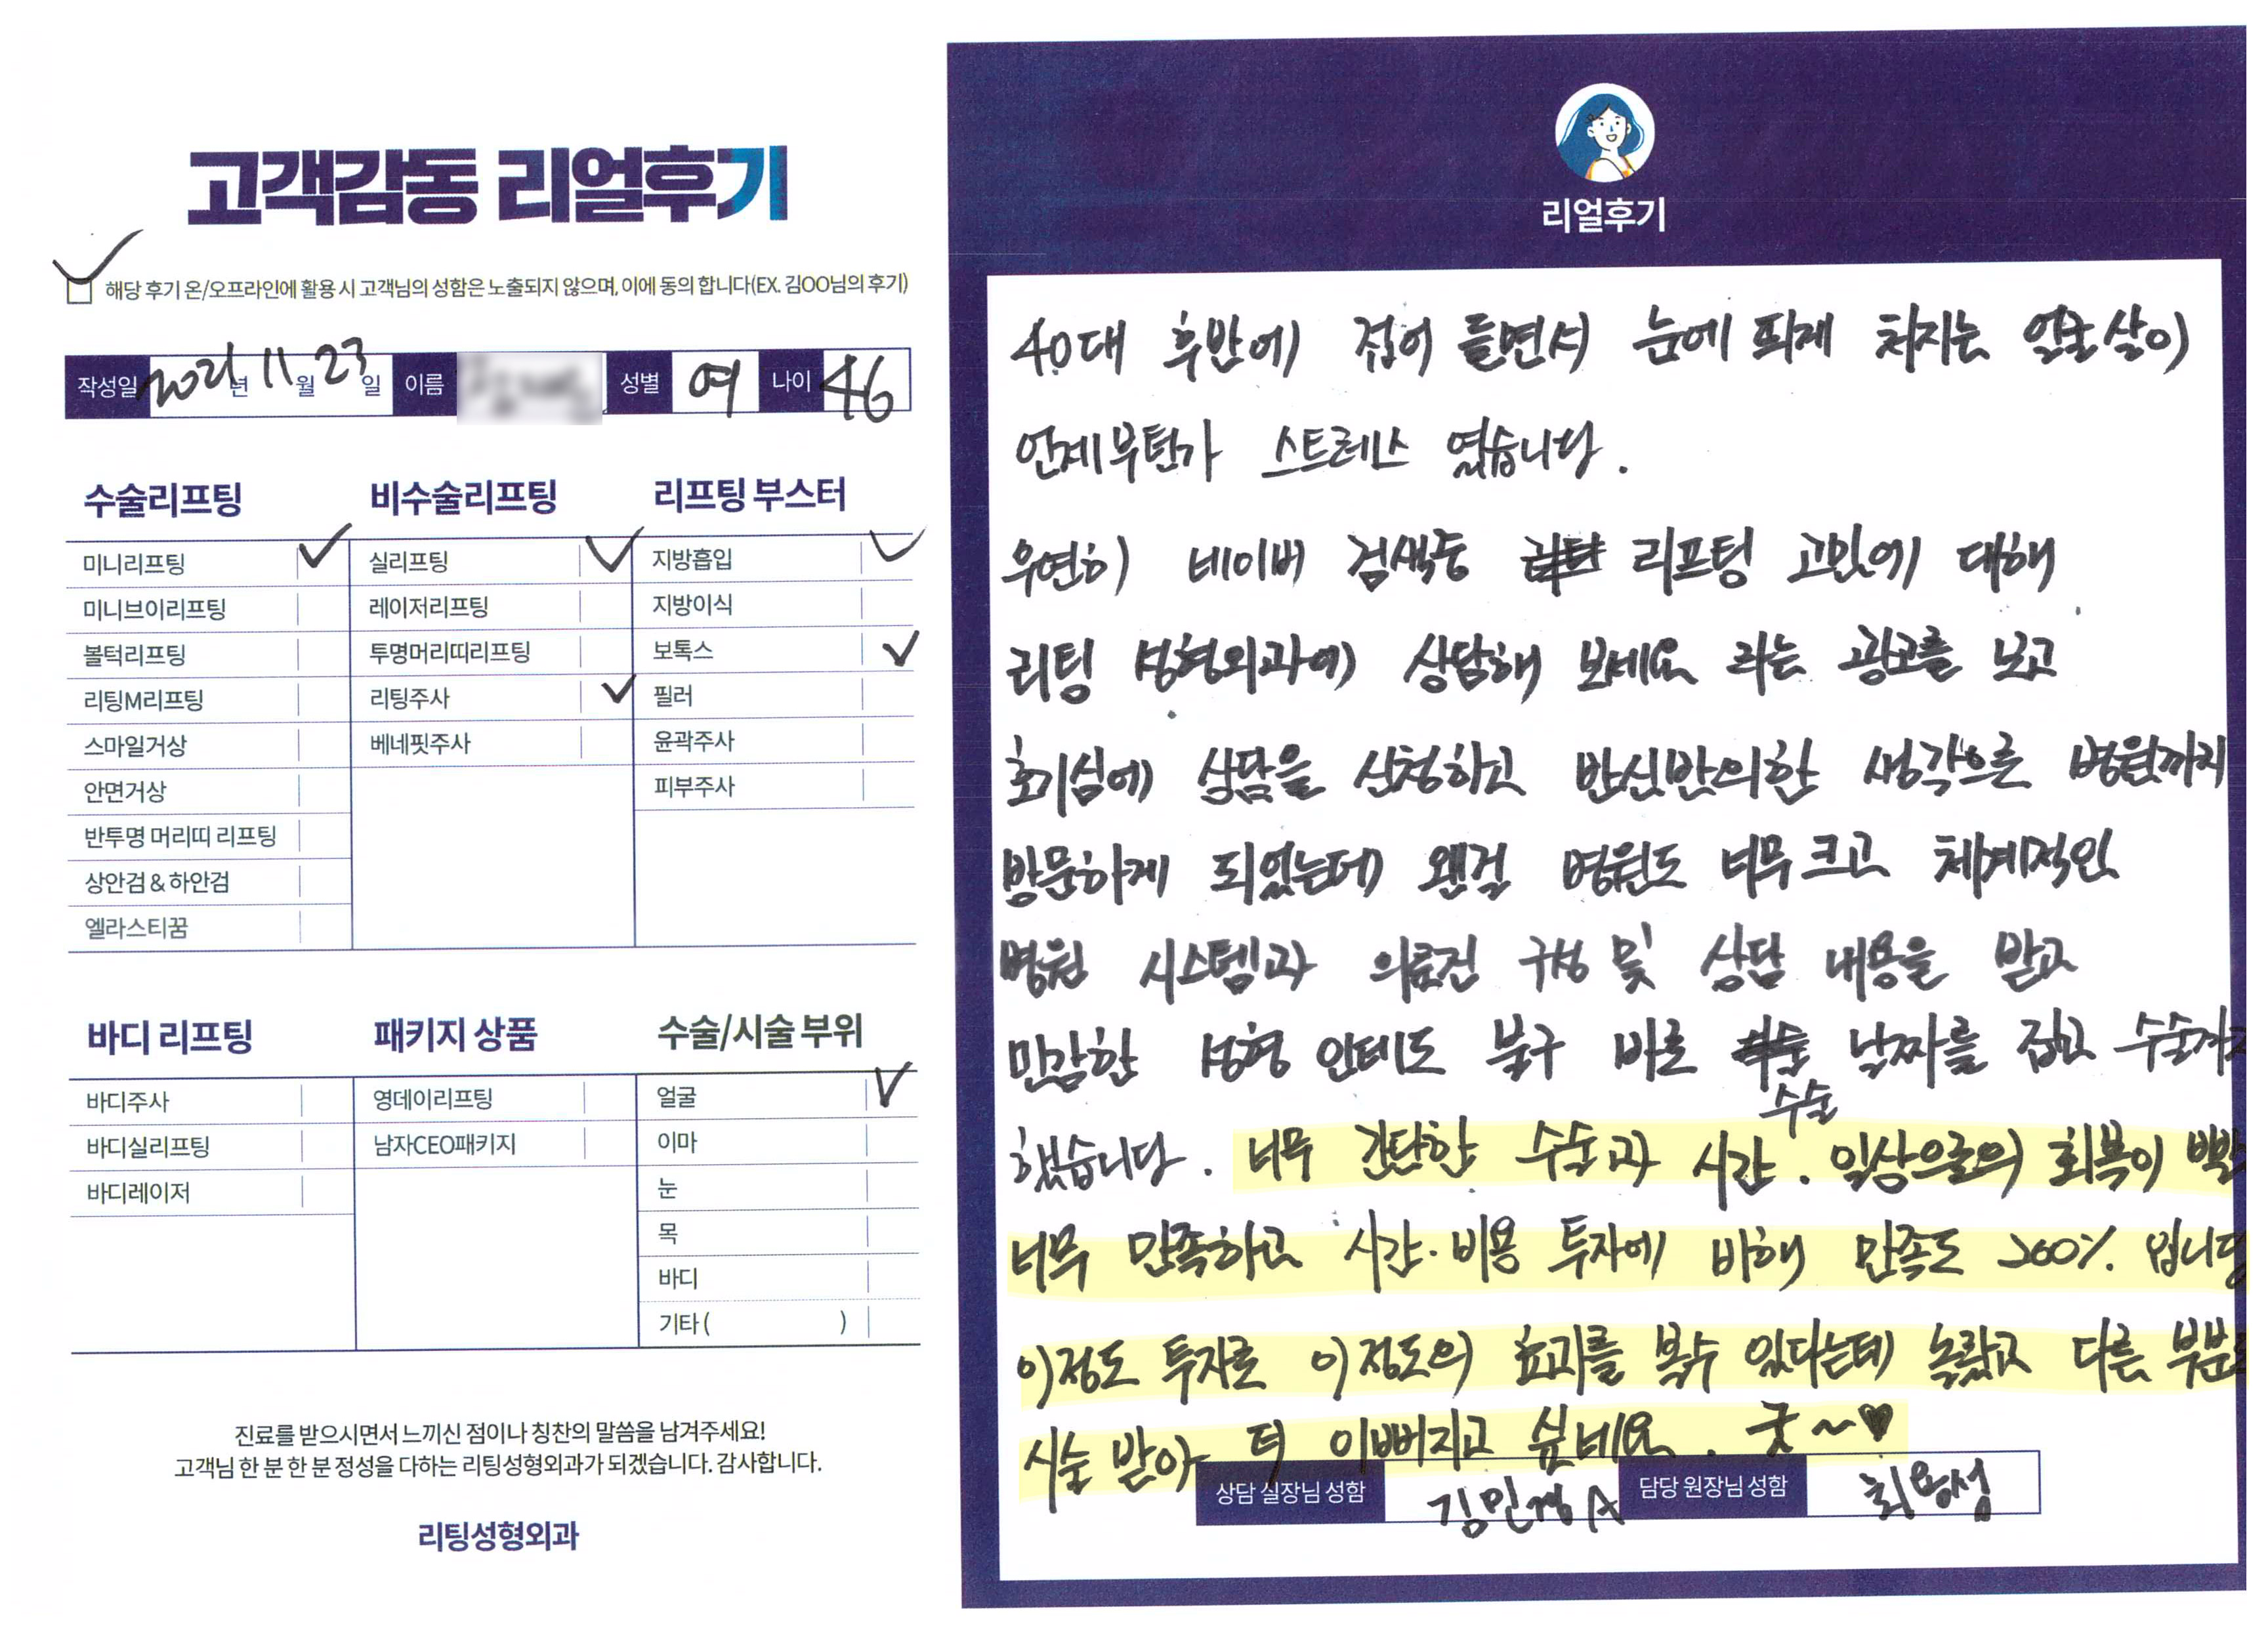 고객감동 리얼후기
해당 후기 온/오프라인에 활용 시 고객님의 성함은 노출되지 않으며, 이에 동의 합니다(EX. 김OO님의 후기)
작성일 2021년 11월 23일 이름 성별 여 나이 46
수술리프팅
미니리프팅
미니브이리프팅
볼턱리프팅
리팅M리프팅
스마일거상
안면거상
반투명 머리띠 리프팅
상안검 & 하안검
엘라스티꿈
비수술리프팅
실리프팅
레이저리프팅
투명머리띠리프팅
리팅주사
베네핏주사
리프팅 부스터
지방흡입
지방이식
보톡스
필러
윤곽주사
피부주사
바디 리프팅
바디주사
바디실리프팅
바디레이저
패키지 상품
영데이리프팅
남자CEO패키지
수술/시술 부위
얼굴
이마
눈
목
바디
기타 ( )
진료를 받으시면서 느끼신 점이나 칭찬의 말씀을 남겨주세요!
고객님 한 분 한 분 정성을 다하는 리팅성형외과가 되겠습니다. 감사합니다.
리팅성형외과
리얼후기
40대 후반에 접어 들면서 눈에 띄게 처지는 얼굴살이
언제부턴가 스트레스 였습니다.
우연히 네이버 검색중 리프팅 고민에 대해
리팅 성형외과에 상담해 보세요 라는 광고를 보고
호기심에 상담을 신청하고 반신반의한 생각으로 병원까지
방문하게 되었는데 왠걸 병원도 너무 크고 체계적인
병원 시스템과 의료진 구성 및 상담 내용을 받고
민감한 성형 인데도 불구 바로 수술 날짜를 잡고 수술까지
했습니다. 너무 간단한 수술과 시간. 일상으로의 회복이 빨라
너무 만족하고 시간·비용 투자에 비해 만족도 200% 입니다
이정도 투자로 이정도의 효과를 볼수 있다는데 놀랐고 다른 부분도
시술 받아 더 이뻐지고 싶네요. 굿~♥
상담 실장님 성함 김민경A 담당 원장님 성함